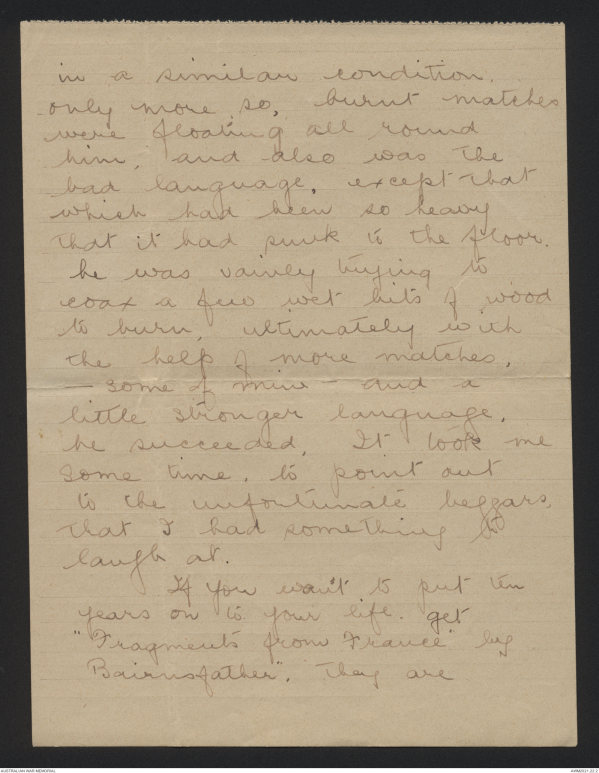 in a similar condition.
only more so, burnt matches
were floating all round
him, and also was the
bad language, except that
which had been so heavy
that it had sunk to the floor.
he was vainly trying to
coax a few wet bits of wood
to burn, ultimately with
the help of more matches,
— some of mine — and a
little stronger language,
he succeeded, It took me
some time, to point out
to the unfortunate beggars,
that I had something to
laugh at.
If you want to put ten
years on to your life. get
"Fragments from France" by
Bairnsfather". They are
AUSTRALIAN WAR MEMORIAL